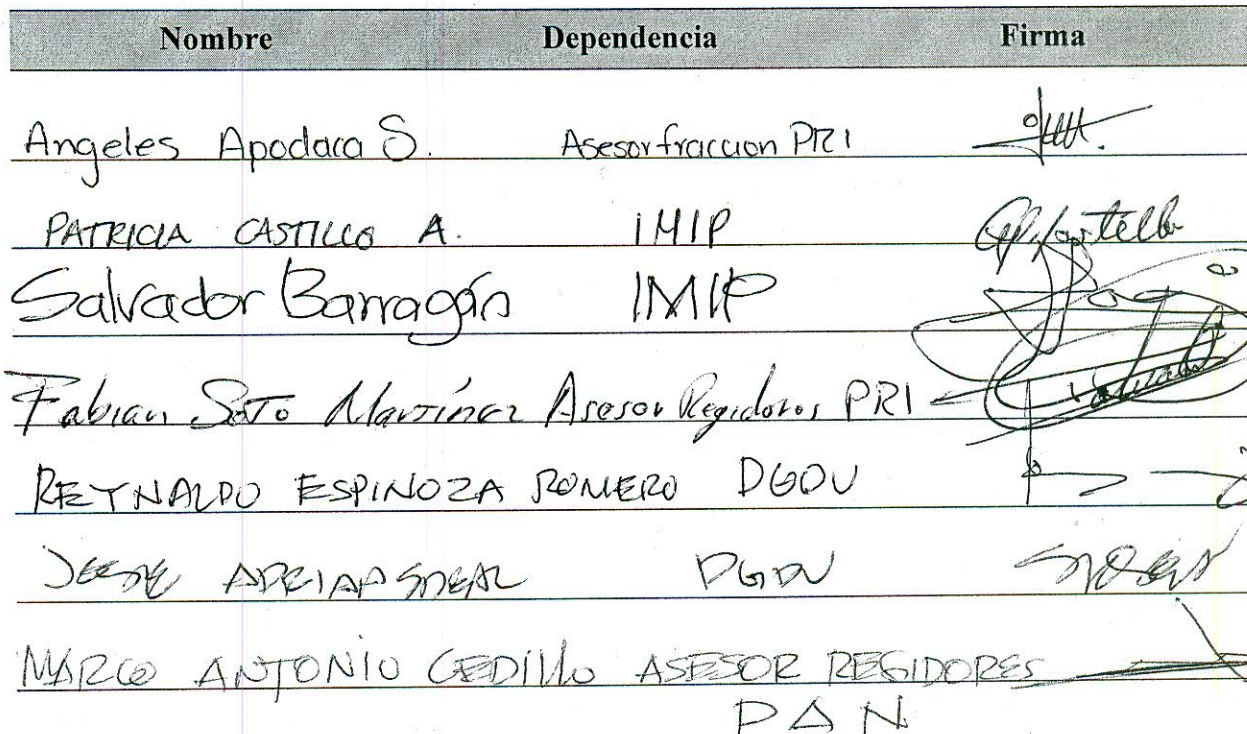 Nombre Dependencia Firma
Angeles Apodaca S. Asesor fraccion PRI
PATRICIA CASTILLO A. IMIP
Salvador Barragán IMIP
Fabian Soto Martínez Asesor Regidores PRI
REYNALDO ESPINOZA ROMERO DGDU
DGDU
MARCO ANTONIO CEDILLO ASESOR REGIDORES
PAN